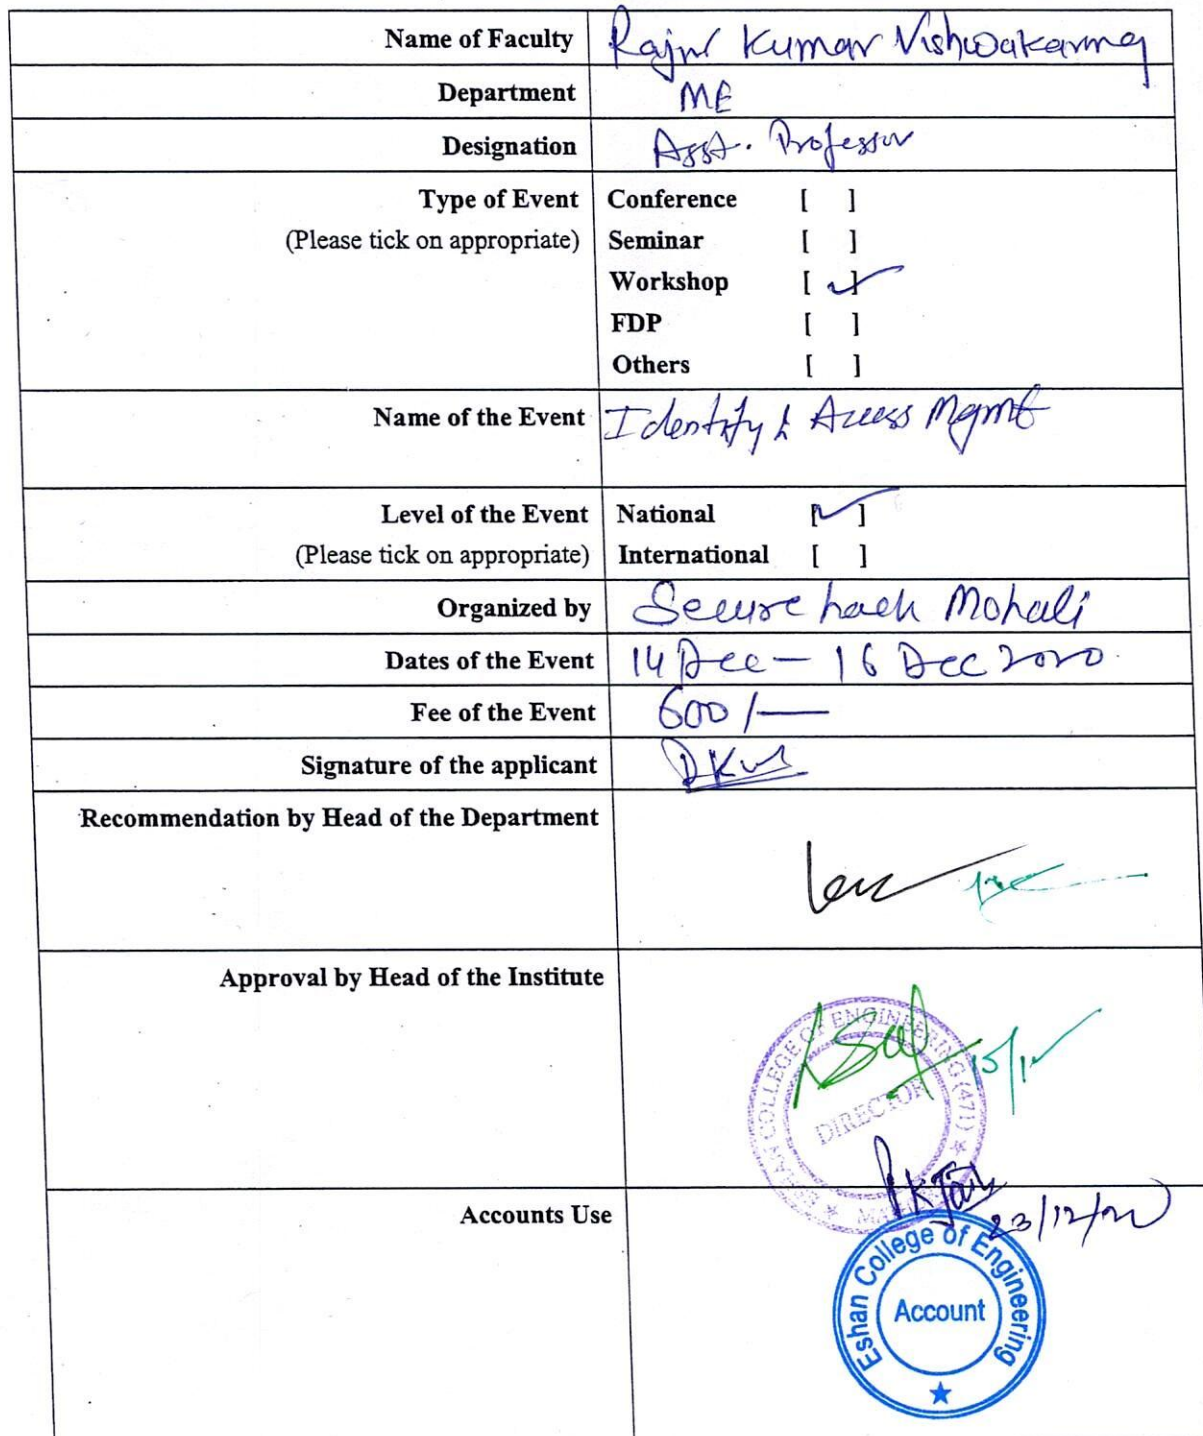 Name of Faculty Kumar Vishwakarma
Department ME
Designation Asst. Professor
Type of Event Conference [ ]
(Please tick on appropriate) Seminar [ ]
Workshop [✓]
FDP [ ]
Others [ ]
Name of the Event Identity & Access Mgmt
Level of the Event National [✓]
(Please tick on appropriate) International [ ]
Organized by Secure hack Mohali
Dates of the Event 14 Dec — 16 Dec 2020
Fee of the Event 600/—
Signature of the applicant
Recommendation by Head of the Department
Approval by Head of the Institute
ESHAN COLLEGE OF ENGINEERING (471)
DIRECTOR
15/12
Accounts Use
PKJain
23/12/20
Eshan College of Engineering
Account